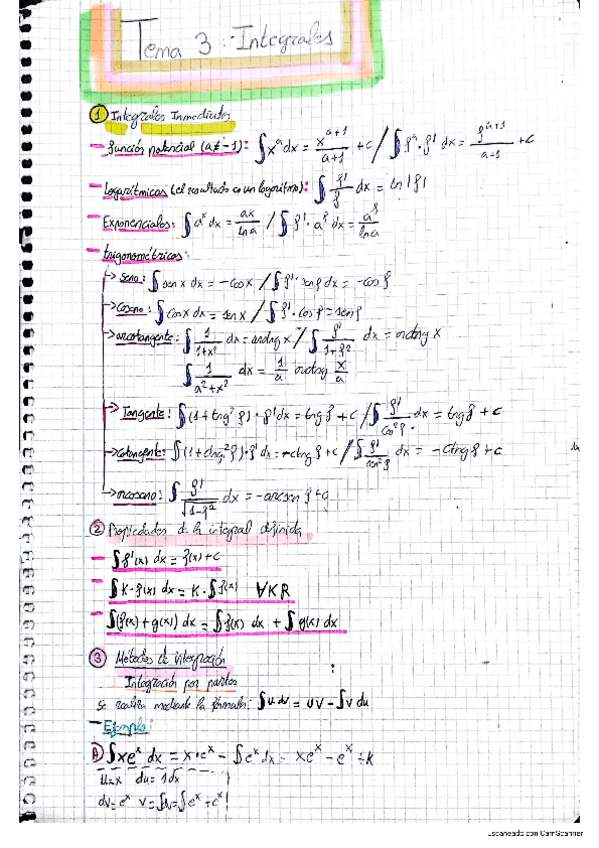 Tema 3: Integrales
① Integrales Inmediatas
- función potencial (a≠-1): ∫x^a dx = x^(a+1)/(a+1) + c / ∫f^a · f' dx = f^(a+1)/(a+1) + c
- Logarítmicas (el resultado es un logaritmo): ∫ f'/f dx = ln|f|
- Exponenciales: ∫a^x dx = ax/ln a / ∫f' · a^f dx = a^f/ln a
- trigonométricas:
→ seno: ∫sen x dx = -cos x / ∫f' · sen f dx = -cos f
→ coseno: ∫cos x dx = sen x / ∫f' · cos f = sen f
→ arcotangente: ∫ 1/(1+x²) dx = arctng x / ∫ f'/(1+f²) dx = arctng x
∫ 1/(a²+x²) dx = 1/a arctng x/a
→ Tangente: ∫(1+tng² f) · f' dx = tng f + c / ∫ f'/cos² f dx = tng f + c
→ cotangente: ∫(1+ctng² f) · f' dx = -ctng f + c / ∫ f'/sen² f dx = -ctng f + c
→ arcoseno: ∫ f'/√(1-f²) dx = -arcsen f + c
② Propiedades de la integral definida
- ∫f'(x) dx = f(x) + c
- ∫K · f(x) dx = K · ∫f(x) ∀KR
- ∫(f(x) + g(x)) dx = ∫f(x) dx + ∫g(x) dx
③ Métodos de integración
Integración por partes
Se realiza mediante la fórmula: ∫u dv = uv - ∫v du
- Ejemplo:
A) ∫xe^x dx = x·e^x - ∫e^x dx = xe^x - e^x + k
u=x du=1dx
dv=e^x v=∫dv=∫e^x=e^x
Escaneado con CamScanner